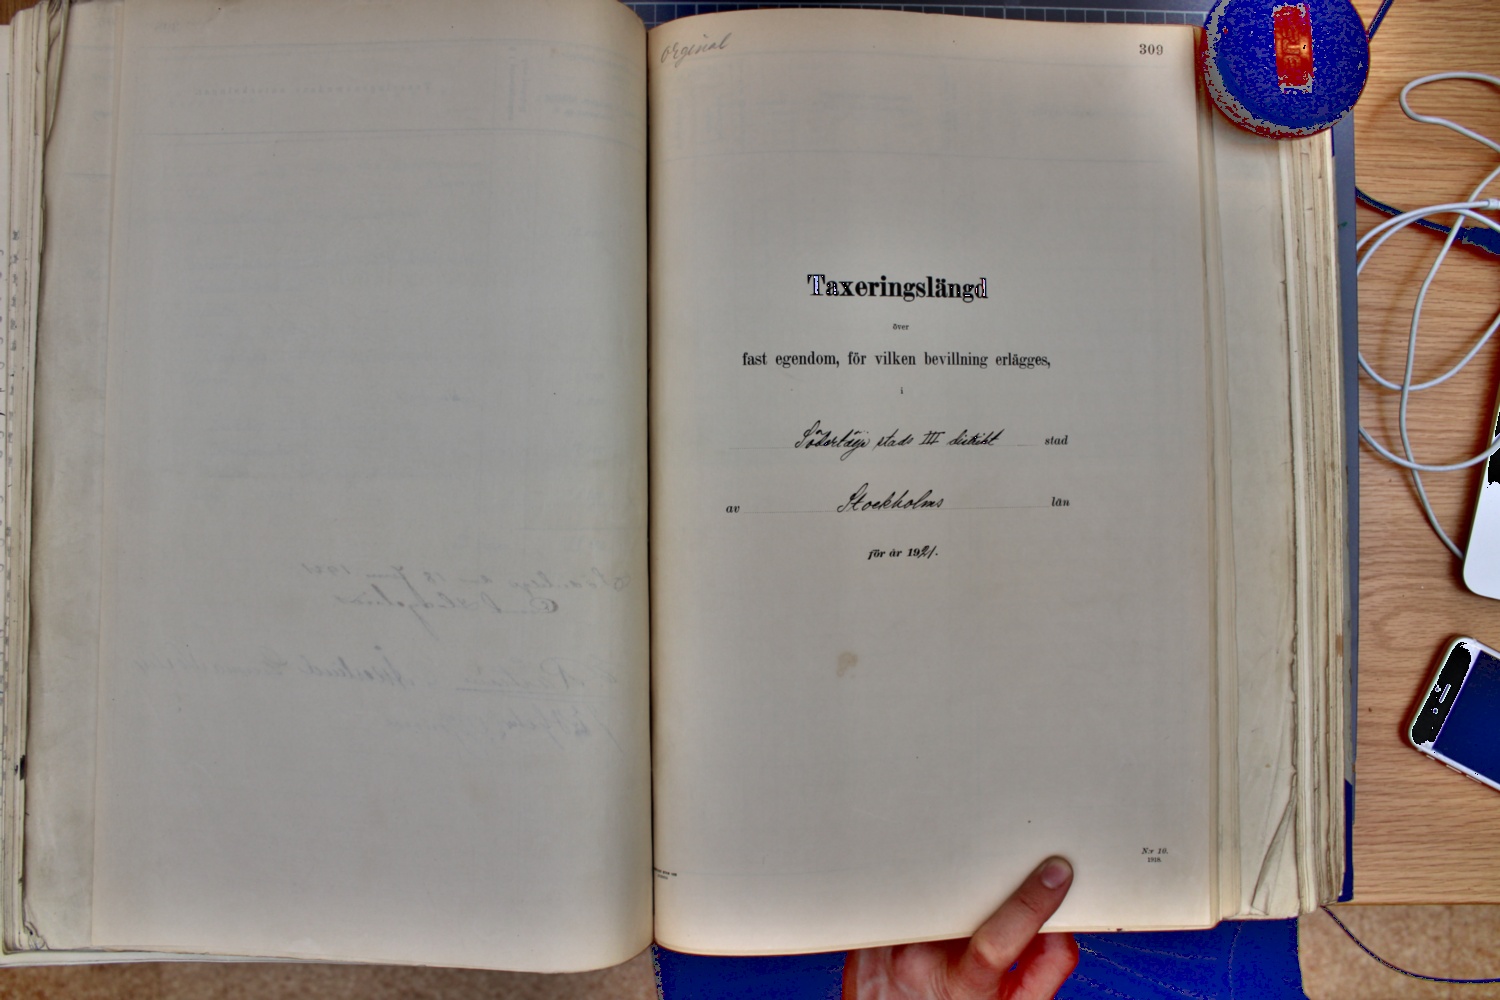 Orginal
309
Taxeringslängd
över
fast egendom, för vilken bevillning erlägges,
i
Södertälje stads III distrikt stad
av Stockholms län
för år 1921.
N:r 10.
1919.